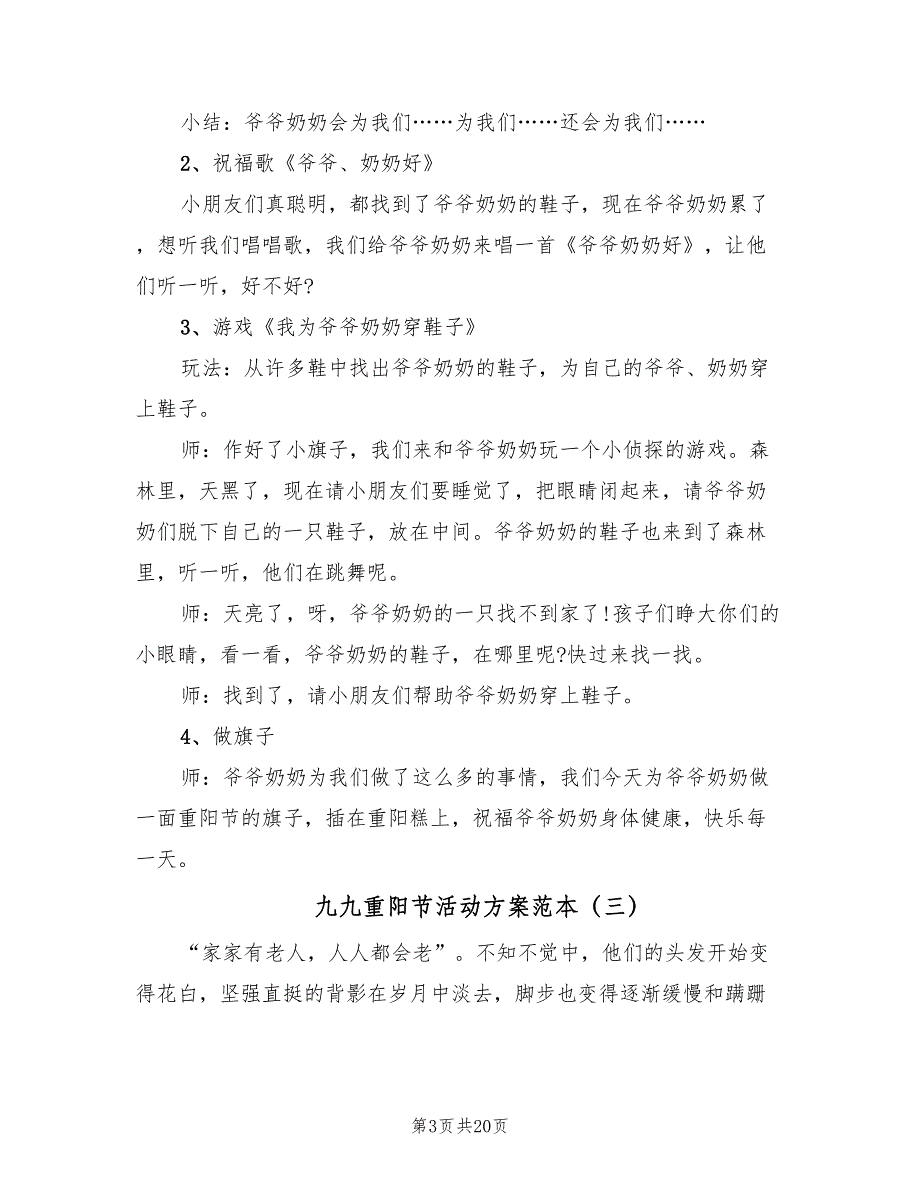 小结：爷爷奶奶会为我们……为我们……还会为我们……
2、祝福歌《爷爷、奶奶好》
小朋友们真聪明，都找到了爷爷奶奶的鞋子，现在爷爷奶奶累了
，想听我们唱唱歌，我们给爷爷奶奶来唱一首《爷爷奶奶好》，让他
们听一听，好不好?
3、游戏《我为爷爷奶奶穿鞋子》
玩法：从许多鞋中找出爷爷奶奶的鞋子，为自己的爷爷、奶奶穿
上鞋子。
师：作好了小旗子，我们来和爷爷奶奶玩一个小侦探的游戏。森
林里，天黑了，现在请小朋友们要睡觉了，把眼睛闭起来，请爷爷奶
奶们脱下自己的一只鞋子，放在中间。爷爷奶奶的鞋子也来到了森林
里，听一听，他们在跳舞呢。
师：天亮了，呀，爷爷奶奶的一只找不到家了!孩子们睁大你们的
小眼睛，看一看，爷爷奶奶的鞋子，在哪里呢?快过来找一找。
师：找到了，请小朋友们帮助爷爷奶奶穿上鞋子。
4、做旗子
师：爷爷奶奶为我们做了这么多的事情，我们今天为爷爷奶奶做
一面重阳节的旗子，插在重阳糕上，祝福爷爷奶奶身体健康，快乐每
一天。
九九重阳节活动方案范本（三）
“家家有老人，人人都会老”。不知不觉中，他们的头发开始变
得花白，坚强直挺的背影在岁月中淡去，脚步也变得逐渐缓慢和蹒跚
第3页共20页